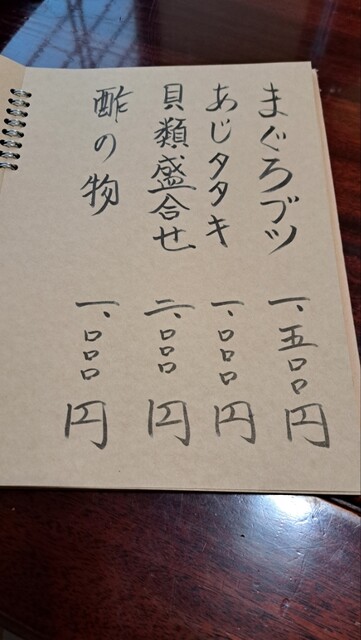 まぐろブツ 一、五〇〇円
あじタタキ 一、〇〇〇円
貝類盛合せ 二、〇〇〇円
酢の物 一、〇〇〇円